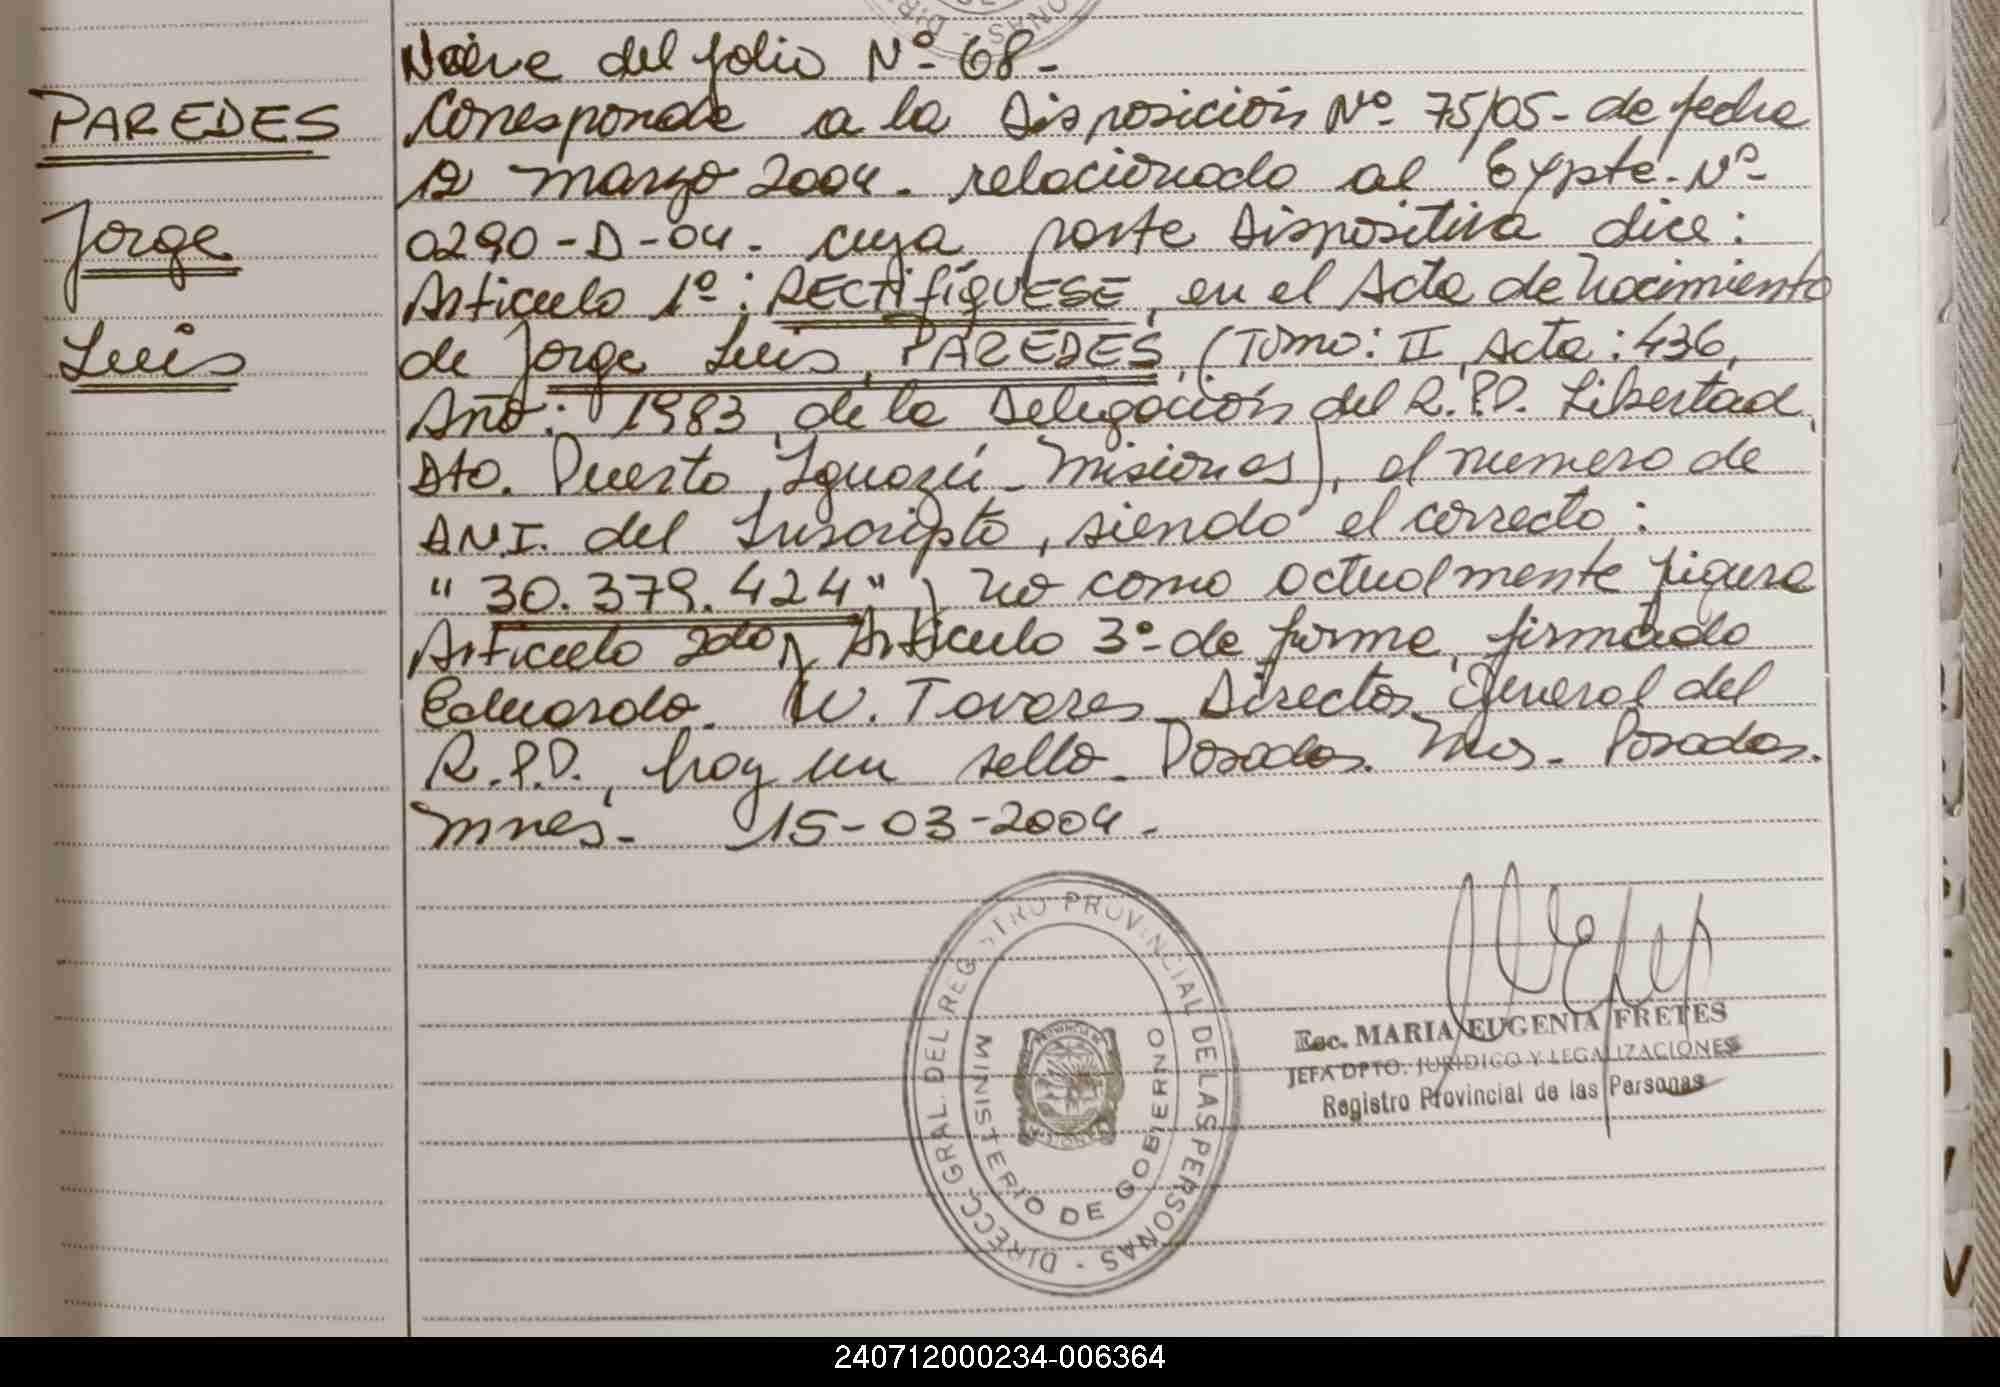 Viene del folio Nº- 68-
PAREDES
Jorge
Luis
Corresponde a la Disposición Nº 75/05- de fecha
12 marzo 2004. relacionado al Expte. Nº-
0290-D-04. cuya parte Dispositiva dice:
Articulo 1º: RECTIFÍQUESE, en el Acta de Nacimiento
de Jorge Luis, PAREDES, (Tomo: II, Acta: 436,
Año: 1983, de la Delegación del R.P.P. Libertad,
Dto. Puerto Iguazú - Misiones), el numero de
D.N.I. del Inscripto, siendo el correcto:
"30.379.424" y no como actualmente figura
Articulo 2do y Articulo 3º- de forma, firmado
Eduardo. W. Tavares Director General del
R.P.P., hay un sello. Posadas. Mnes. Posadas.
Mnes- 15-03-2004.
DIRECC. GRAL. DEL REGISTRO PROVINCIAL DE LAS PERSONAS -
MINISTERIO DE GOBIERNO
Esc. MARIA EUGENIA FRETES
JEFA DPTO. JURIDICO Y LEGALIZACIONES
Registro Provincial de las Personas
240712000234-006364